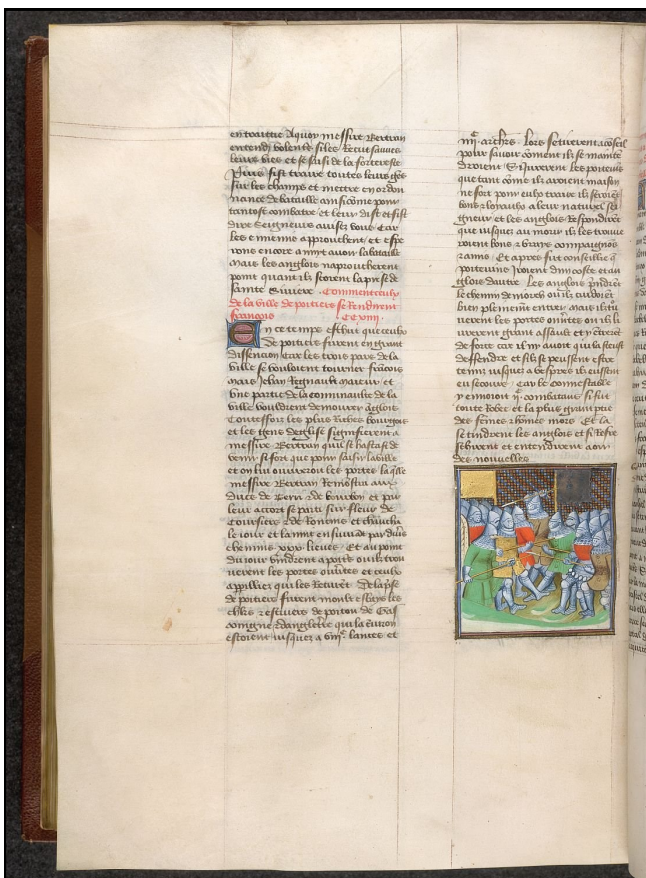 en traittie Aquoy messire Bertran
entendi volente si les Recut sauues
leurs vies et se saisi de la forteresse
Puis fist traire toutes leurs gens
sur les champs et mettre en ordon
nance de bataille ainsi come pour
tantost combatre et leur dist et fist
dire Seigneurs auisez vous Car
les ennemis approuchent et espe
rons encore a nuyt auoir la bataille
Mais les anglois naproucherent
point quant ilz sceurent la prise de
sainte Seuere Comment ceulx
de la ville de poitiers se Rendirent
francois CC xviij
En ce temps estoit que ceulx
de poitiers furent en grant
dissencion Car les trois pars de la
ville se vouloient tourner francois
Mais Jehan Regnault maieur et
vne partie de la communaulte de la
ville vouldrent demourer anglois
toutessoiz les plus Riches bourgois
et les gens deglise signifierent a
messire Bertran quil se hastast de
venir si fort que pour saisir la ville
et on lui ouuriroit les portes laquelle
messire Bertran Remonstra aux
ducz de Berry de bourbon et par
leur accort se parti sur fleur de
Coursiers de Roncins et cheuaucha
le iour et la nuit ensuiuant par diuers
chemins xxx lieues Et au point
du iour vindrent a poitiers ou ilz trou
uerent les portes ouuertes et ceulx
appilliez qui les Recurent De la prise
de poitiers furent moult esbahis les
chlrs et escuiers de poitou de Gas
coingne dangleterre qui la enuiron
estoient iusques a lances et
archiers Lors se tirerent a conseil
pour sauoir coment ilz se mainte
droient Si iurerent les poiteuins
que tant come ilz auroient maison
ne fort pour eulx traire ilz seroient
bons et loyaulx a leur naturel sei
gneur et les anglois Respondirent
que iusques au mourir ilz les trouue
roient bons et vrais compaignons
amis Et apres fut conseillie que
poiteuins yroient dun coste et an
glois dautre Les anglois prindrent
le chemin de niorth ou ilz cuidoient
bien plainement entrer mais ilz trou
uerent les portes ou ilz li
urerent grant assault et y entrerent
de force car il ny auoit qui la sceust
deffendre et silz se peussent estre
tenuz iusquez a vespres ilz eussent
eu secours car le connestable
y enuoioit combatans si fut
toute Robee et la plus grant partie
des femes et homes mors Et la
se tindrent les anglois et si Refres
chirent et entendirent auoir
des nouuelles